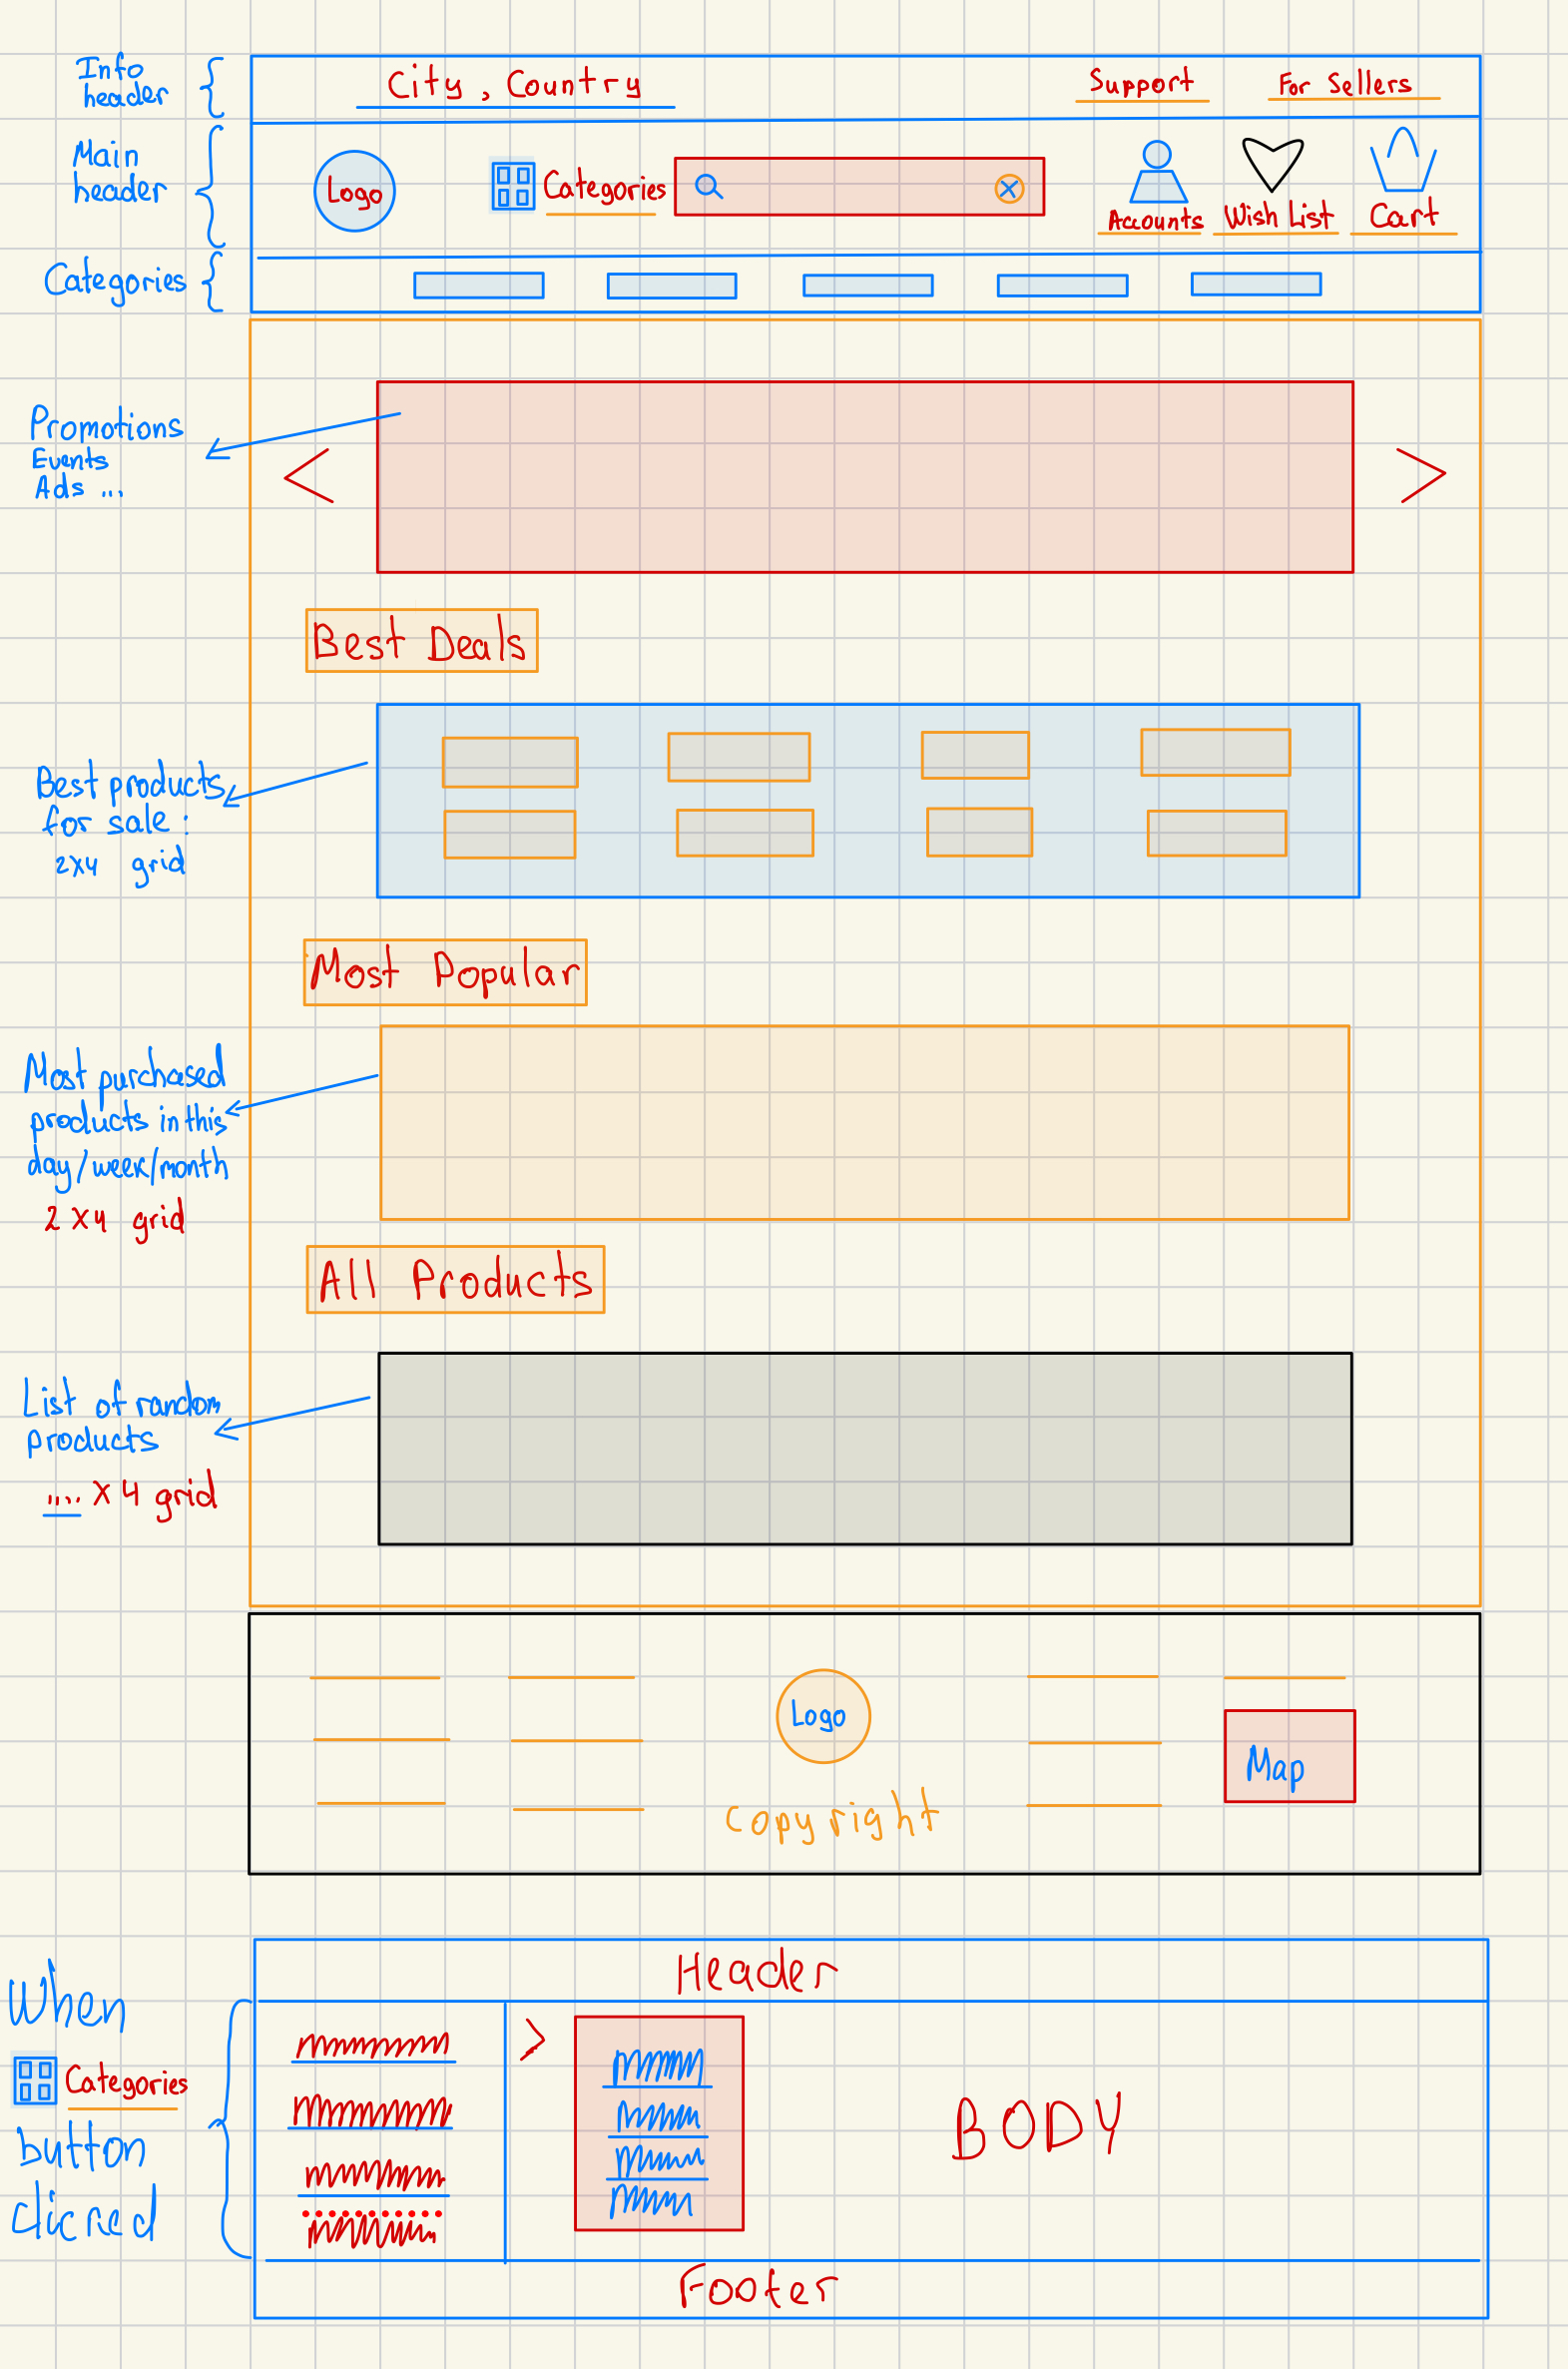 Info
header
City, Country
Support
For Sellers
Main
header
Logo
Categories
Accounts
Wish List
Cart
Categories
Promotions
Events
Ads ...
<
>
Best Deals
Best products
for sale :
2x4 grid
Most Popular
Most purchased
products in this
day/week/month
2 x 4 grid
All Products
List of random
products
.... x 4 grid
Logo
Map
Copyright
Header
When
Categories
button
clicked
>
BODY
Footer